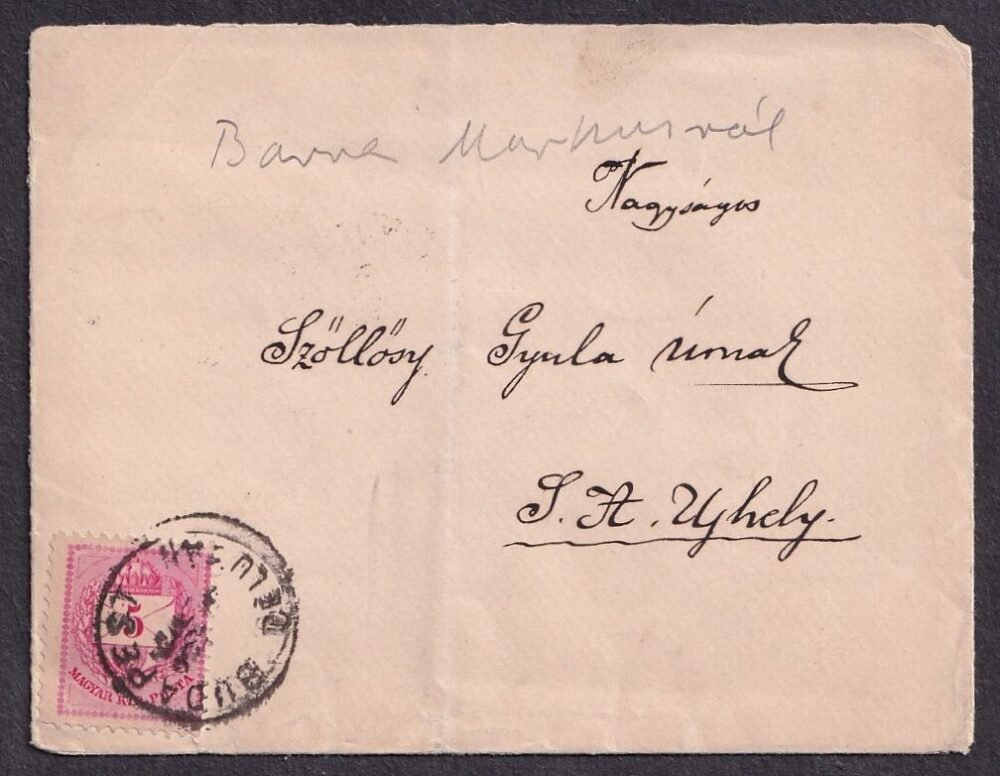 Barna Markusnál
Nagyságos
Szőllősy Gyula úrnak
S. A. Ujhely.
5
MAGYAR KIR. POSTA
BUDAPEST